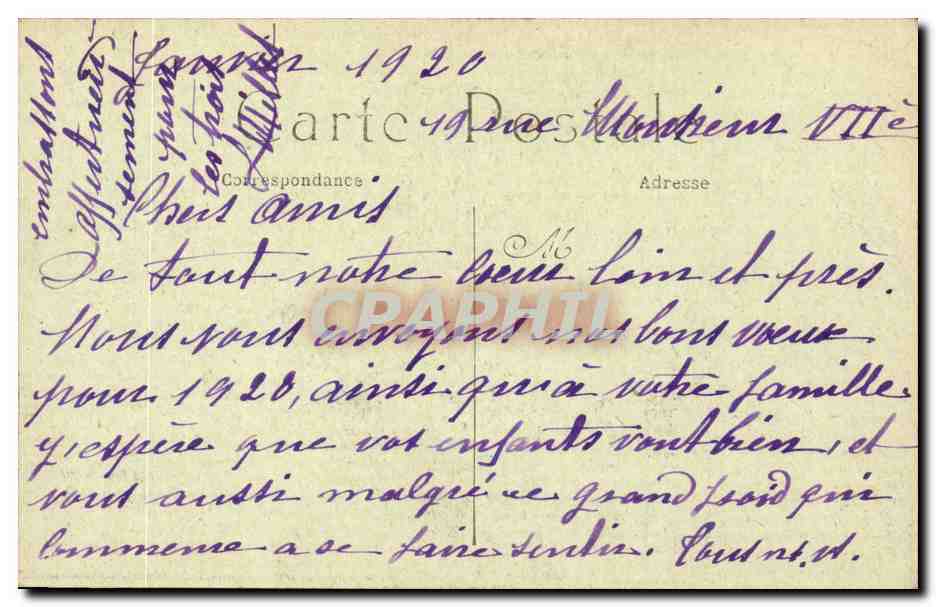 Janvier 1920
Carte Postale
19 rue Monsieur VIIè
Correspondance
Adresse
Chers amis
M
De tout notre coeur loin et près.
Nous vous envoyons nos bons voeux
CPARHTI
pour 1920, ainsi qu'à votre famille
j'espère que vos enfants vont bien, et
vous aussi malgré ce grand froid qui
commence a se faire sentir. Tous n. v.
embrassons
affectueu-
sement
pour
les trois